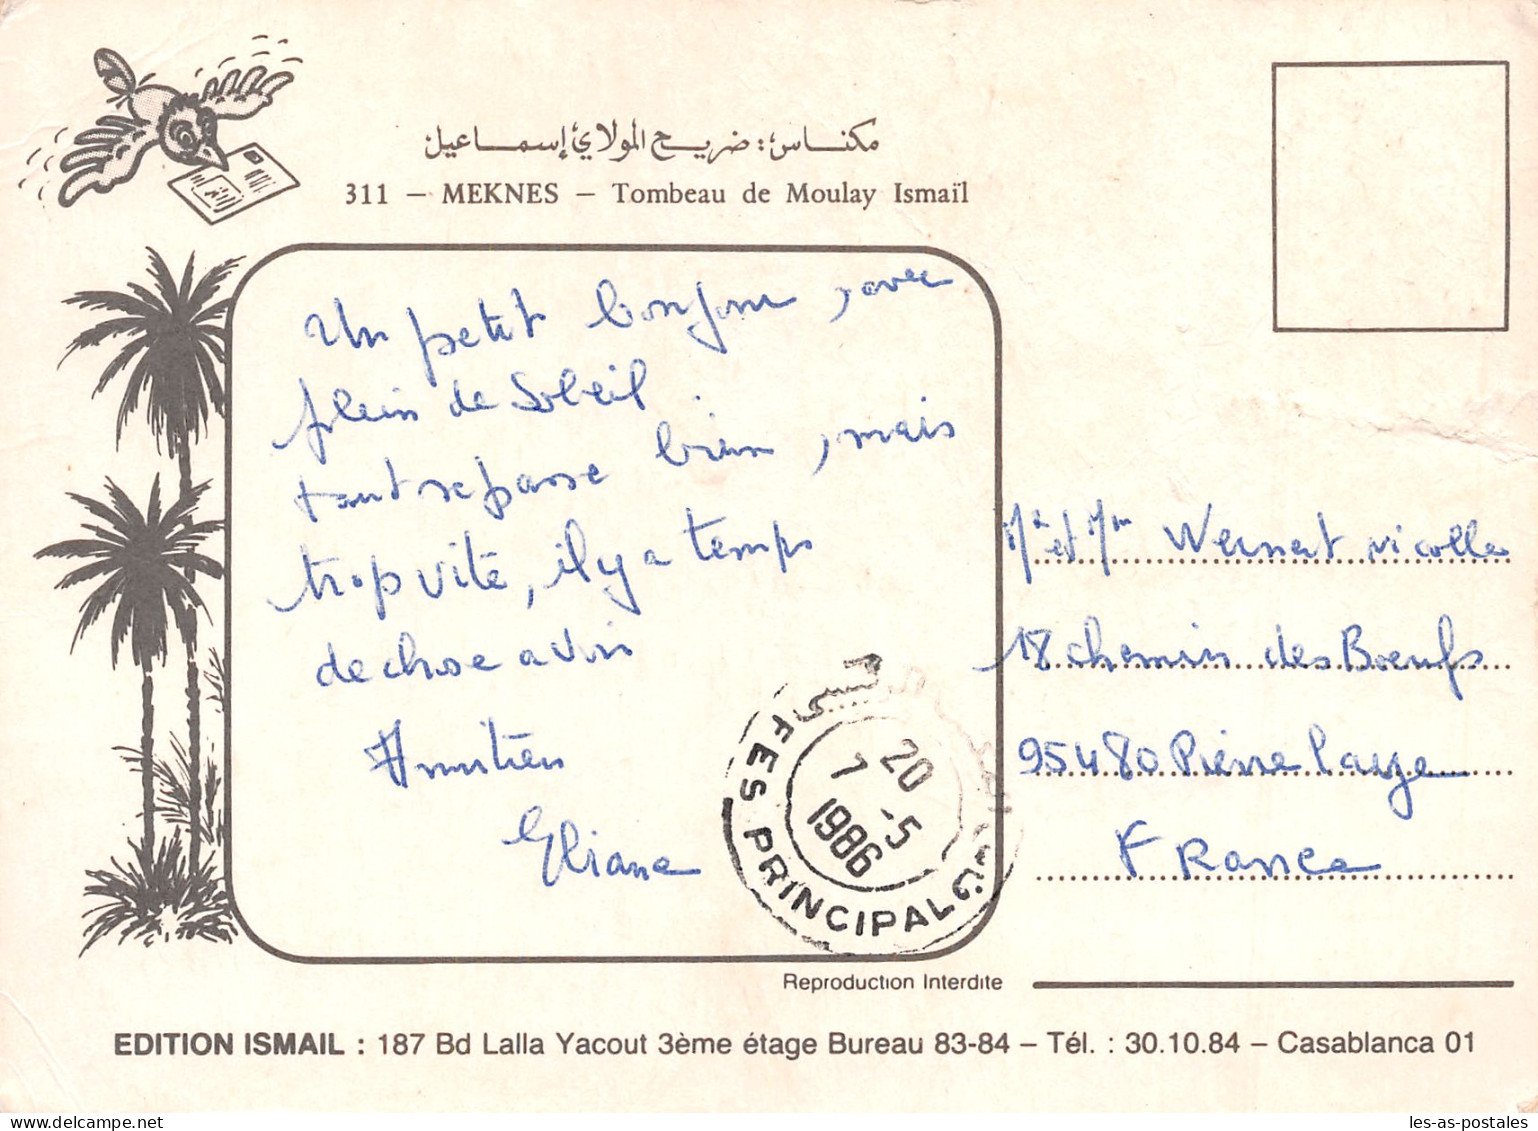 مكناس: ضريح المولاي إسماعيل
311 – MEKNES – Tombeau de Moulay Ismaïl
Un petit bonjour, avec
plein de Soleil.
tout se passe bien, mais
trop vite, il y a temps
de chose a voir
Amitiés
Eliane
Mr et Mme Wernert nicolle
18 chemin des Boeufs
95480 Pierrelaye
France
FES PRINCIPAL
20
7 -5
1986
Reproduction Interdite
EDITION ISMAIL : 187 Bd Lalla Yacout 3ème étage Bureau 83-84 – Tél. : 30.10.84 – Casablanca 01
les-as-postales